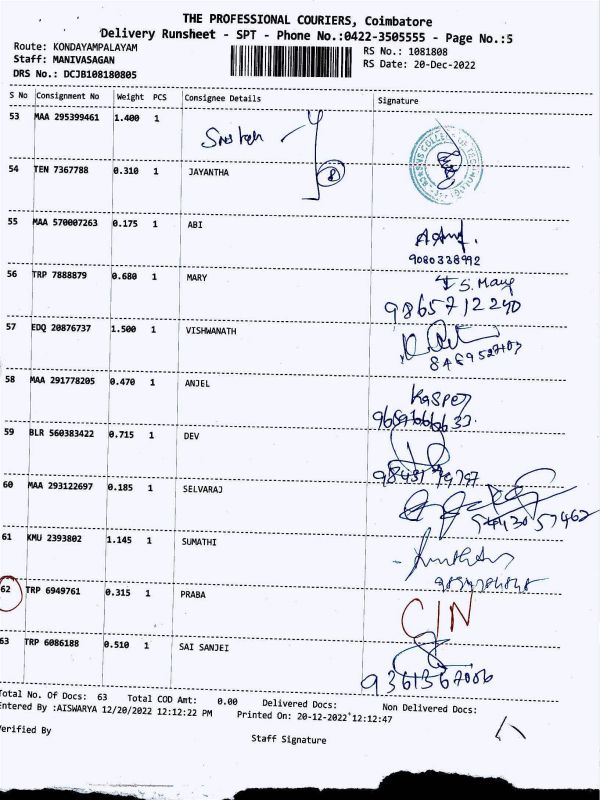 THE PROFESSIONAL COURIERS, Coimbatore
Delivery Runsheet - SPT - Phone No.:0422-3505555 - Page No.:5
Route: KONDAYAMPALAYAM
RS No.: 1081808
Staff: MANIVASAGAN
RS Date: 20-Dec-2022
DRS No.: DCJB108180805
S No Consignment No Weight PCS Consignee Details Signature
53 MAA 295399461 1.400 1
54 TEN 7367788 0.310 1 JAYANTHA
8
55 MAA 570007263 0.175 1 ABI
9080338992
56 TRP 7888879 0.680 1 MARY
S. Mary
9865712240
57 EDQ 20876737 1.500 1 VISHWANATH
58 MAA 291778205 0.470 1 ANJEL
Kasper
59 BLR 560383422 0.715 1 DEV
60 MAA 293122697 0.185 1 SELVARAJ
61 KMU 2393802 1.145 1 SUMATHI
62 TRP 6949761 0.315 1 PRABA
C/N
63 TRP 6086188 0.510 1 SAI SANJEI
9361367006
Total No. Of Docs: 63 Total COD Amt: 0.00 Delivered Docs: Non Delivered Docs:
Entered By :AISWARYA 12/20/2022 12:12:22 PM Printed On: 20-12-2022 12:12:47
Verified By
Staff Signature